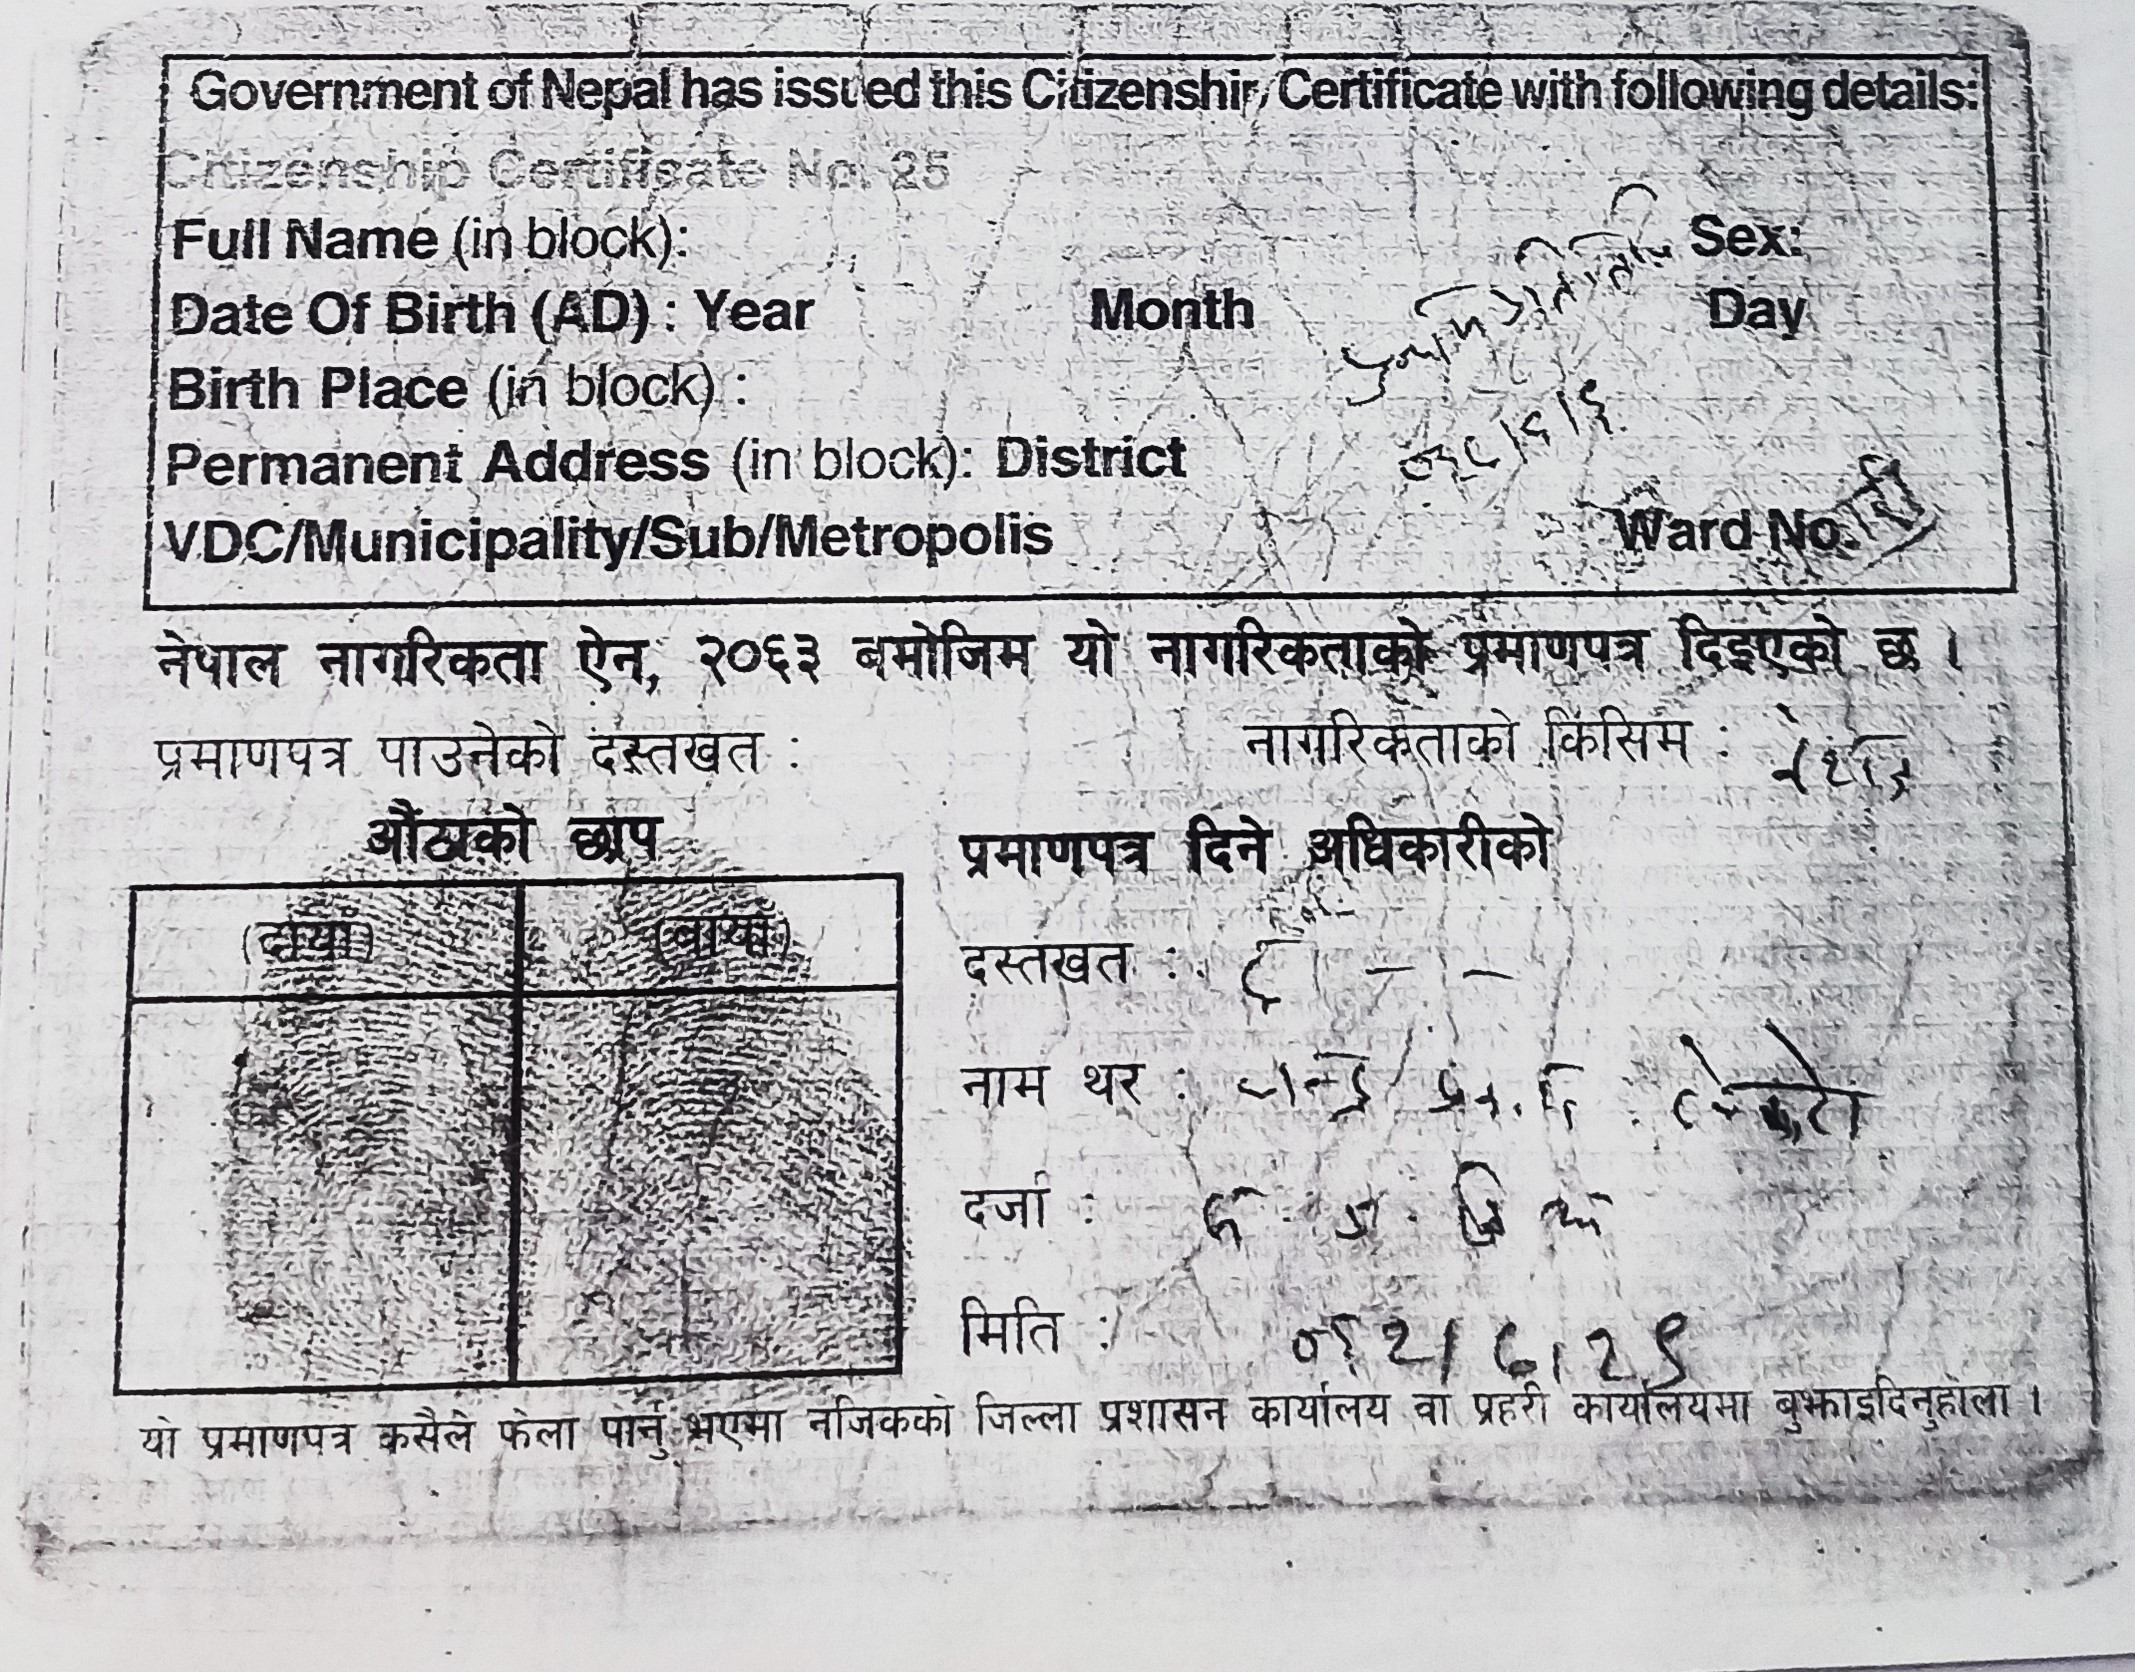 Government of Nepal has issued this Citizenship Certificate with following details:
Citizenship Certificate No. 25
Full Name (in block): Sex:
Date Of Birth (AD) : Year Month Day
Birth Place (in block) :
Permanent Address (in block): District
VDC/Municipality/Sub/Metropolis Ward No.
नेपाल नागरिकता ऐन, २०६३ बमोजिम यो नागरिकताको प्रमाणपत्र दिइएको छ ।
प्रमाणपत्र पाउनेको दस्तखत : नागरिकताको किसिम :
औंठाको छाप
(दायाँ) (बायाँ)
प्रमाणपत्र दिने अधिकारीको
दस्तखत :
नाम थर :
दर्जा :
मिति :
यो प्रमाणपत्र कसैले फेला पार्नु भएमा नजिकको जिल्ला प्रशासन कार्यालय वा प्रहरी कार्यालयमा बुझाइदिनुहोला ।